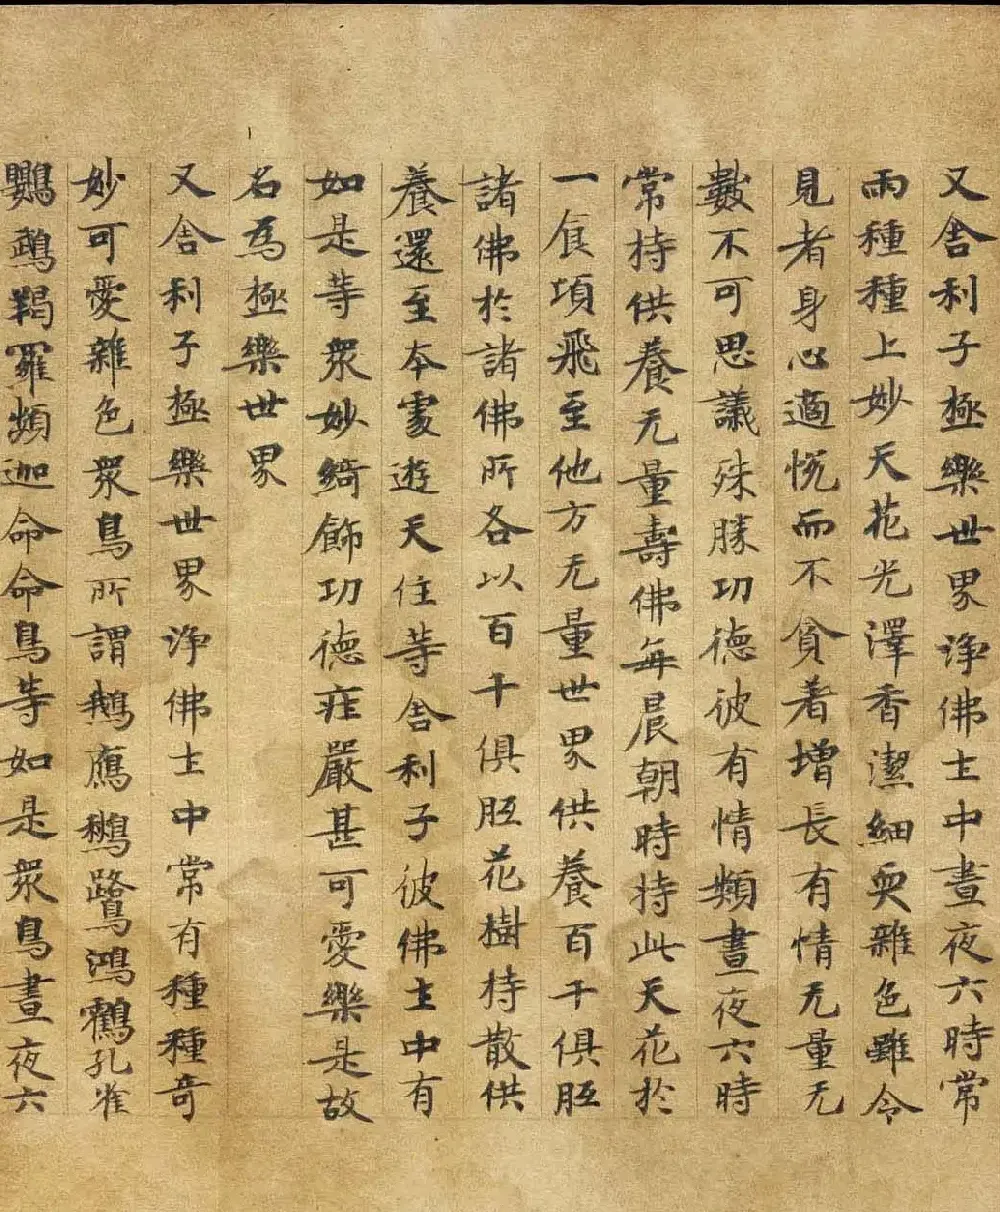 又舍利子極樂世界淨佛土中晝夜六時常
雨種種上妙天花光澤香潔細耎雜色雖令
見者身心適悅而不貪著增長有情无量无
數不可思議殊勝功德彼有情類晝夜六時
常持供養无量壽佛每晨朝時持此天花於
一食頃飛至他方无量世界供養百千俱胝
諸佛於諸佛所各以百千俱胝花樹持散供
養還至本處遊天住等舍利子彼佛土中有
如是等眾妙綺飾功德庄嚴甚可愛樂是故
名為極樂世界
又舍利子極樂世界淨佛土中常有種種奇
妙可愛雜色眾鳥所謂鵝鴈鶖鷺鴻鶴孔雀
鸚鵡羯羅頻迦命命鳥等如是眾鳥晝夜六